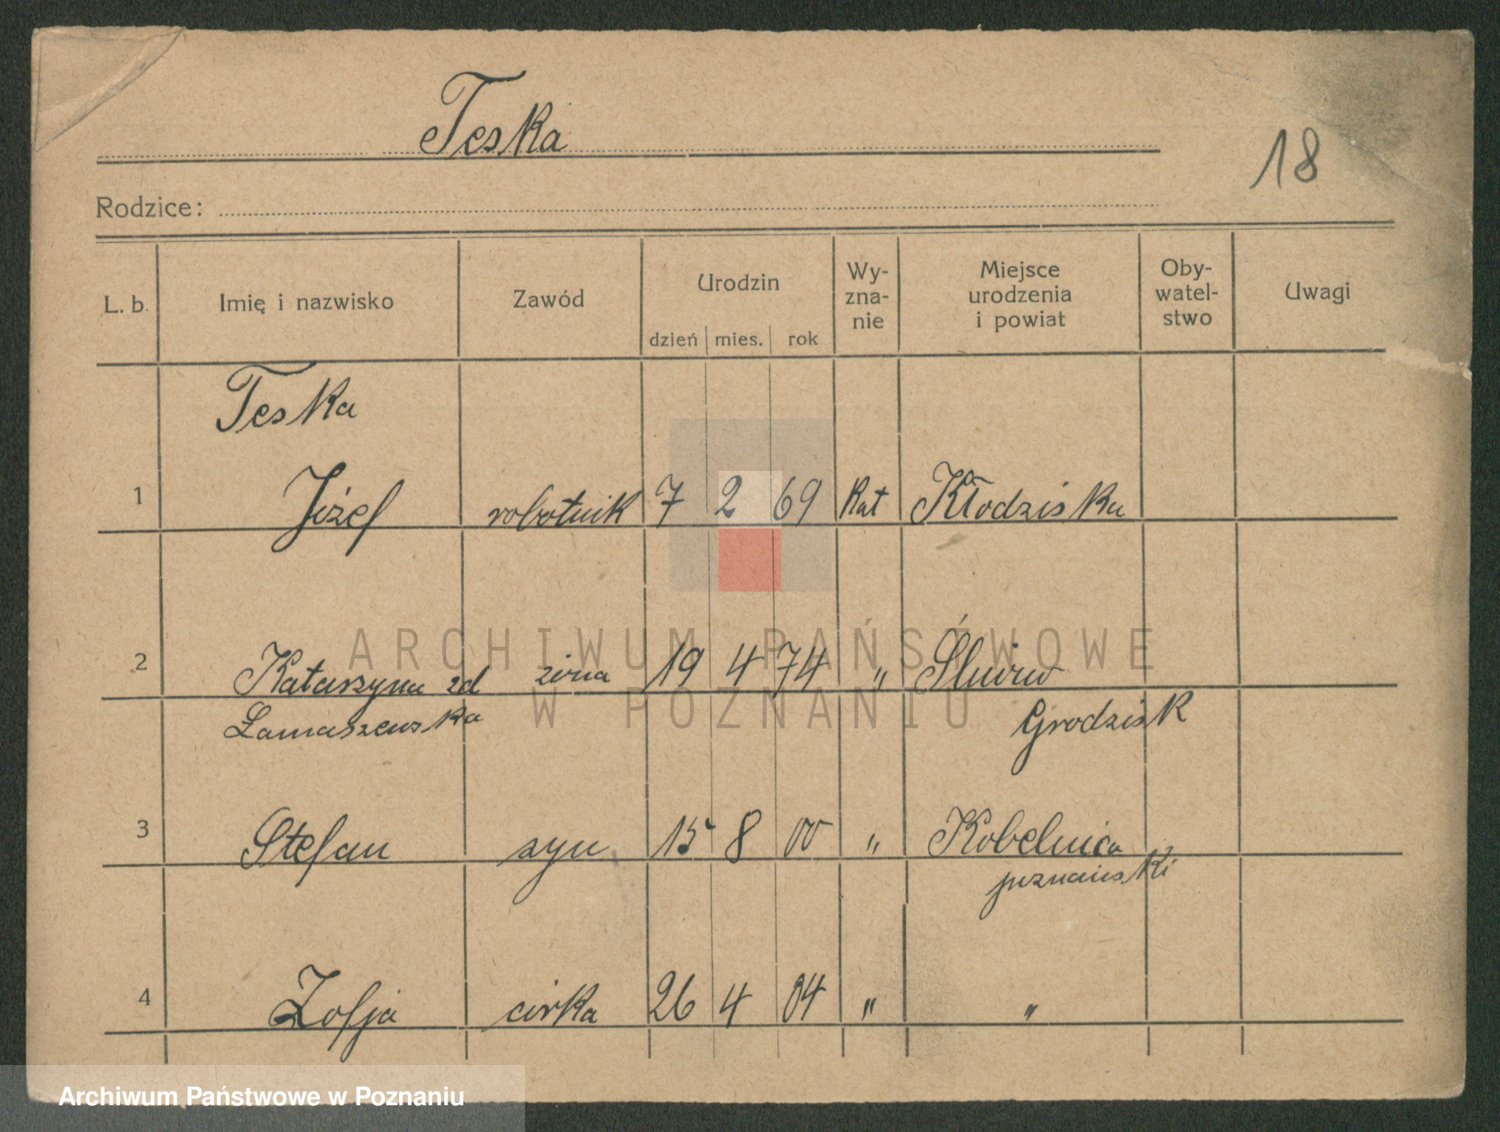 Teska
18
Rodzice:
L. b. Imię i nazwisko Zawód Urodzin dzień mies. rok Wy-zna-nie Miejsce urodzenia i powiat Oby-watel-stwo Uwagi
Teska
1 Józef robotnik 7 2 69 Kat Kłodzisku
2 Katarzyna zd żona 19 4 74 "
Łamaszewska Grodzisk
3 Stefan syn 15 8 00 " Kobelnica
poznański
4 Zofja córka 26 4 04 " "
ARCHIWUM PAŃSTWOWE
W POZNANIU
Archiwum Państwowe w Poznaniu